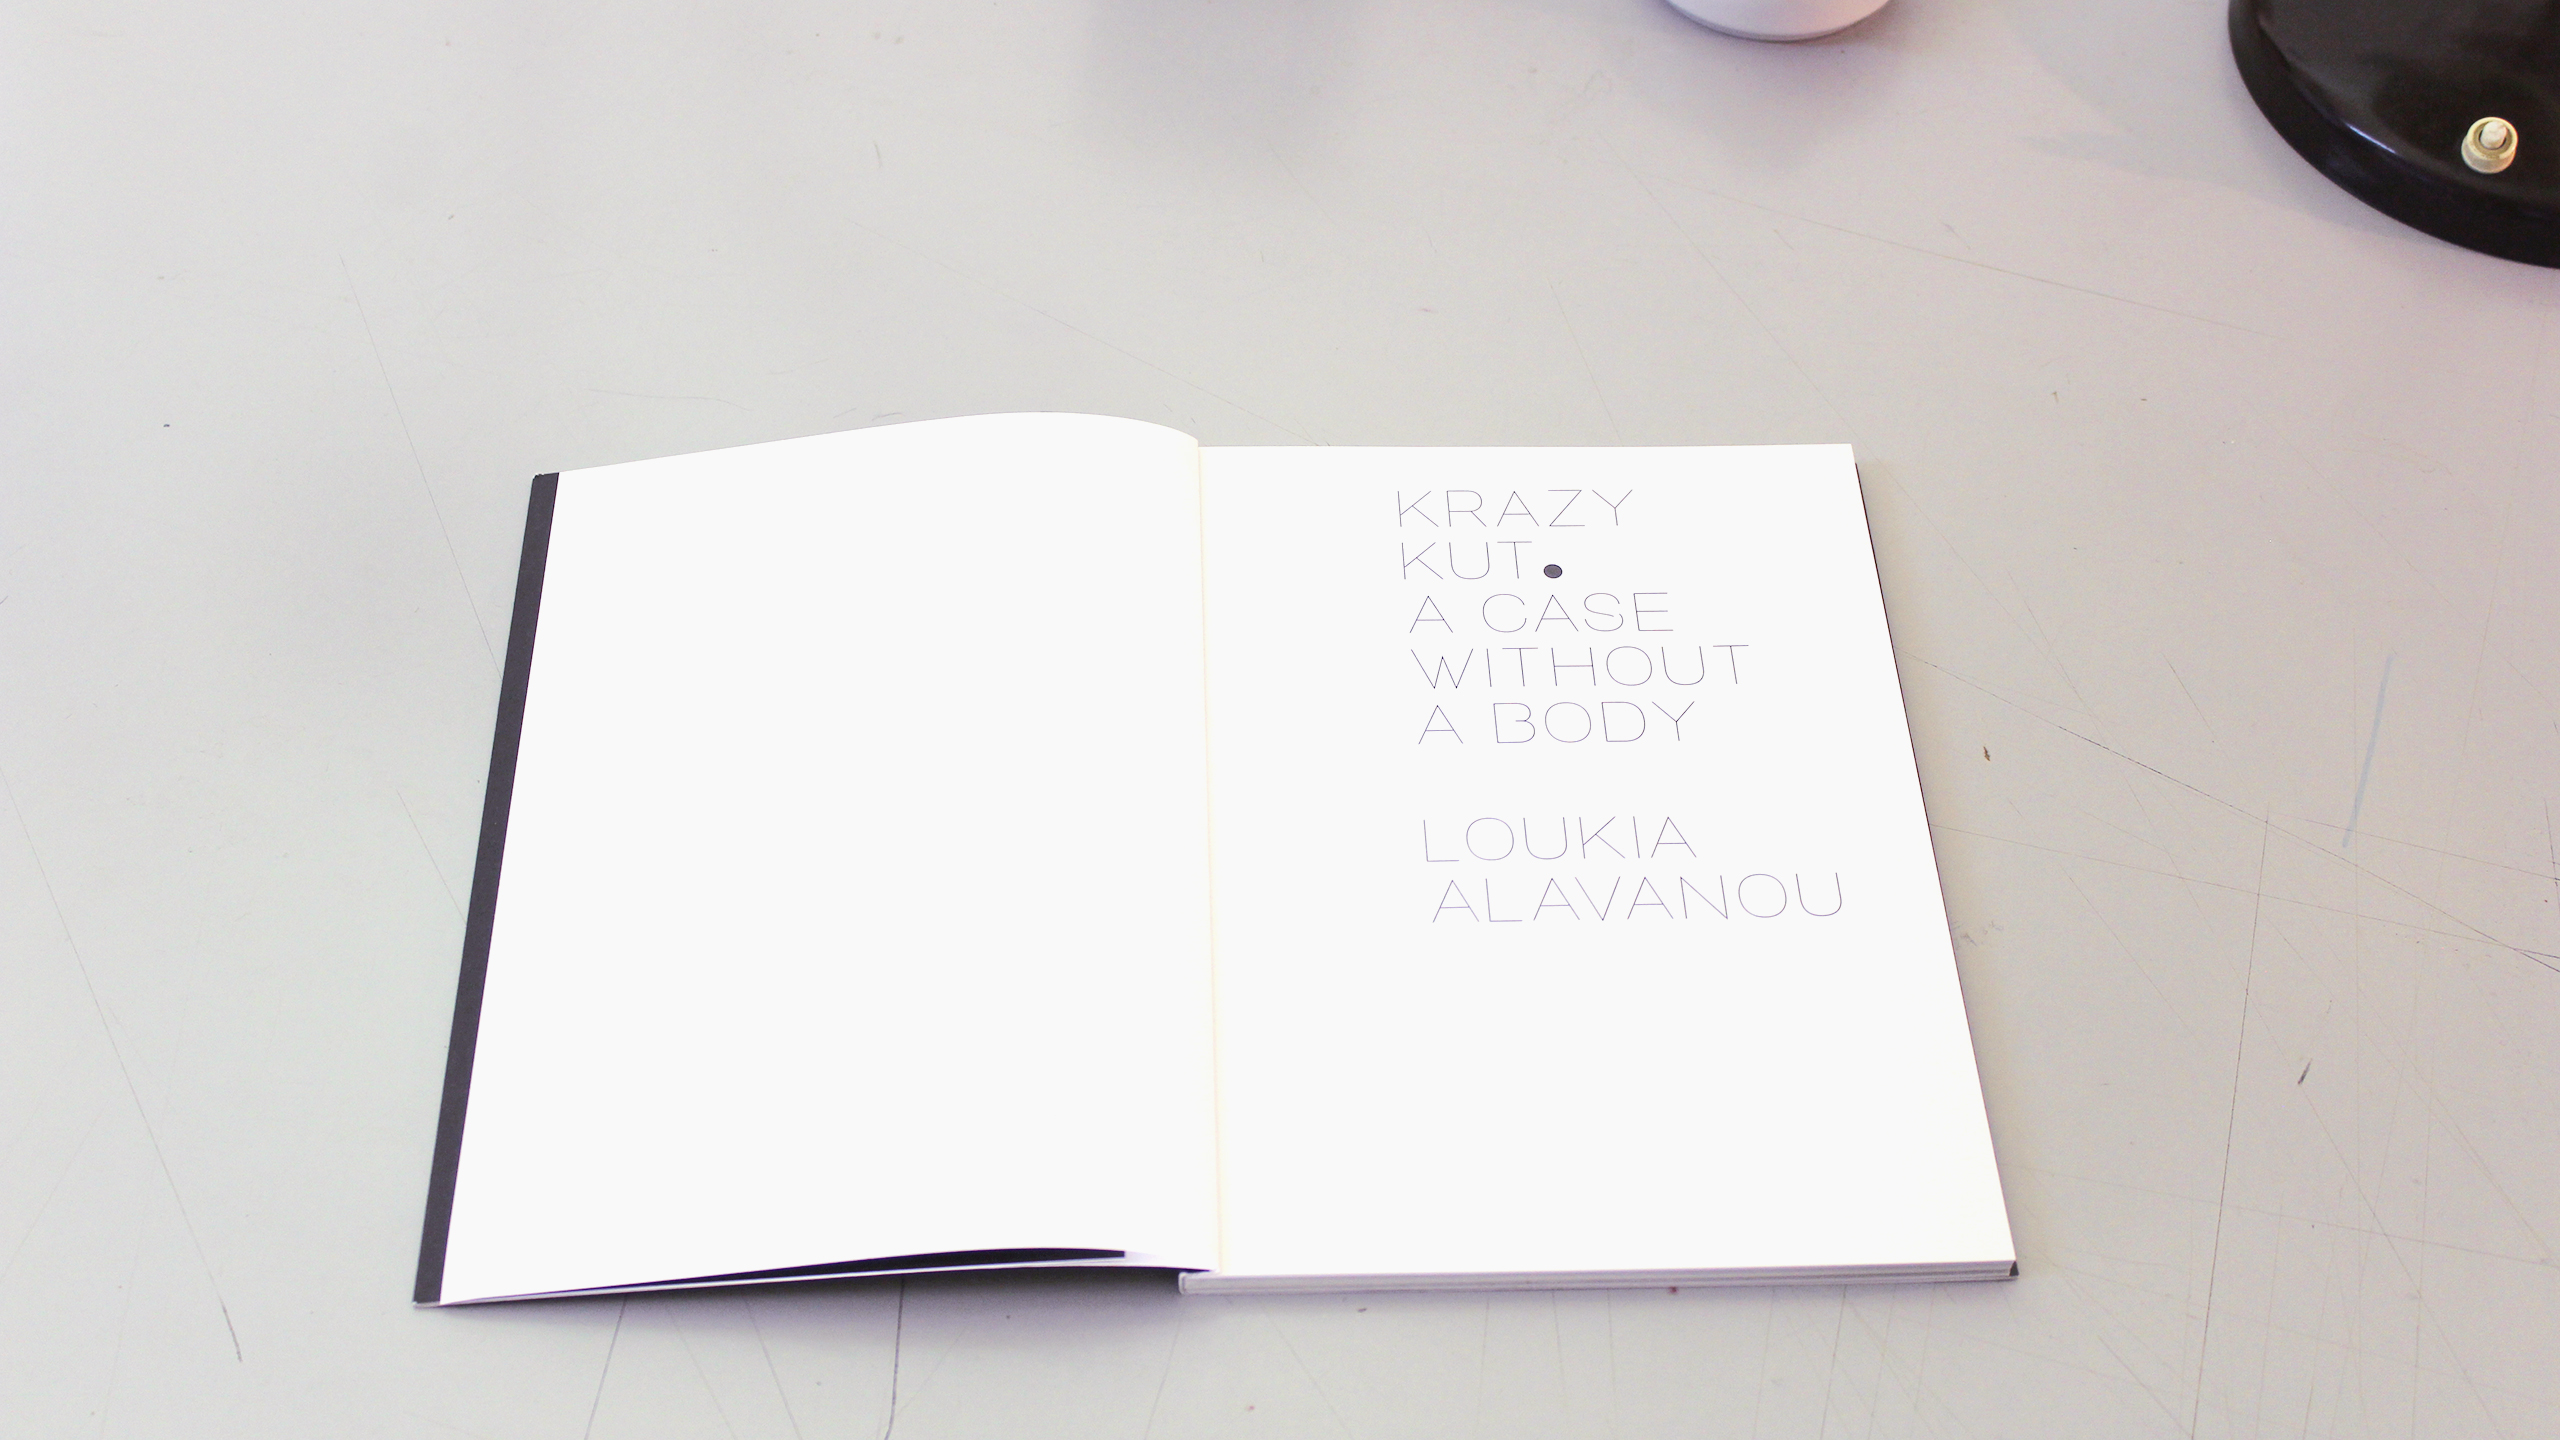 KRAZY
KUT.
A CASE
WITHOUT
A BODY
LOUKIA
ALAVANOU